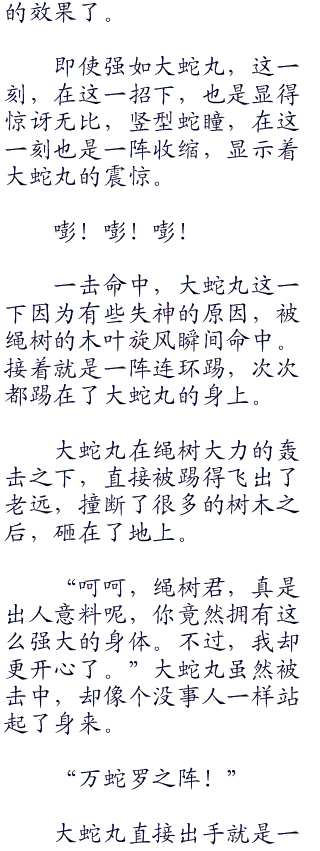 的效果了。
即使强如大蛇丸，这一
刻，在这一招下，也是显得
惊讶无比，竖型蛇瞳，在这
一刻也是一阵收缩，显示着
大蛇丸的震惊。
嘭！嘭！嘭！
一击命中，大蛇丸这一
下因为有些失神的原因，被
绳树的木叶旋风瞬间命中。
接着就是一阵连环踢，次次
都踢在了大蛇丸的身上。
大蛇丸在绳树大力的轰
击之下，直接被踢得飞出了
老远，撞断了很多的树木之
后，砸在了地上。
“呵呵，绳树君，真是
出人意料呢，你竟然拥有这
么强大的身体。不过，我却
更开心了。”大蛇丸虽然被
击中，却像个没事人一样站
起了身来。
“万蛇罗之阵！”
大蛇丸直接出手就是一